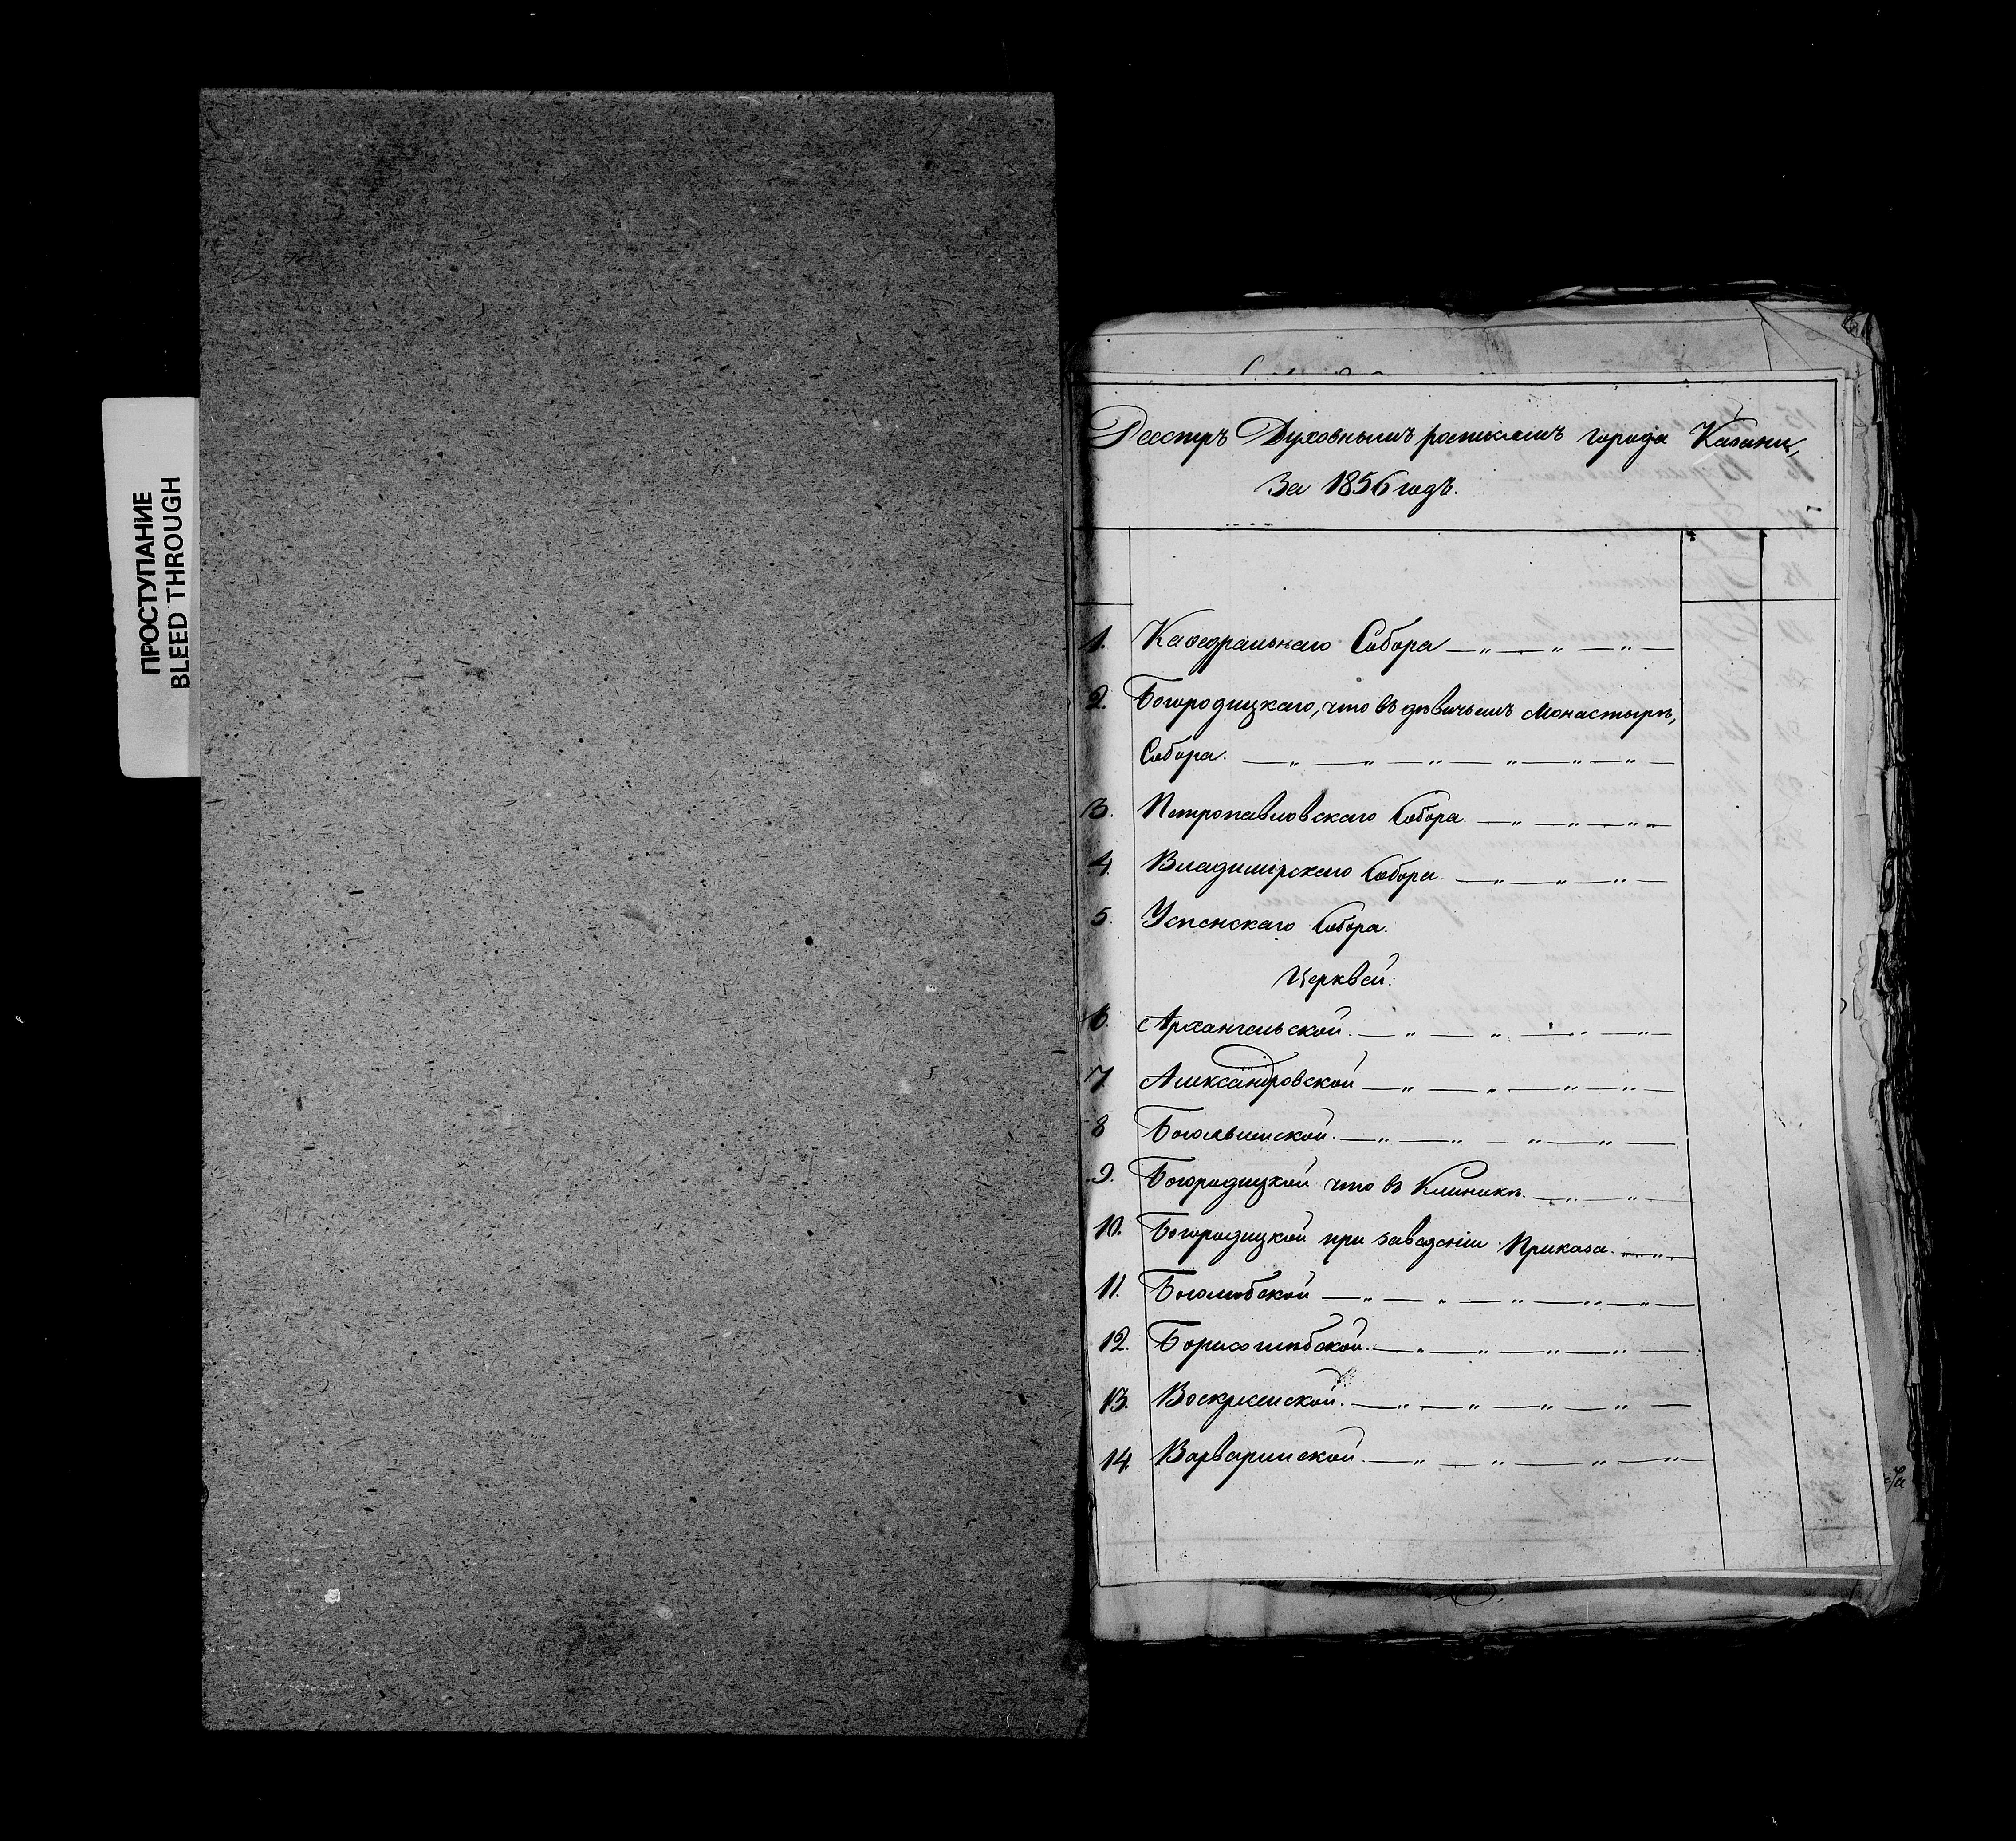 ПРОСТУПАНИЕ
BLEED THROUGH
Реестръ Духовнымъ росписямъ города Казани,
За 1856 годъ.
1. Каѳедральнаго Собора
2. Богородицкаго, что въ дѣвичьемъ Монастырѣ,
Собора.
3. Петропавловскаго Собора.
4. Владимірскаго Собора.
5. Успенскаго Собора.
Церквей:
6. Архангельской.
7. Александровской
8 Богоявленской.
9. Богородицкой что въ Клиникѣ.
10. Богородицкой при заведеніи Приказа.
11. Боголюбской
12. Борисоглебской.
13. Воскресенской.
14. Варваринской.